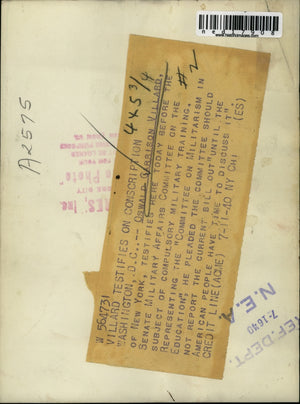 ned17908
www.hwcdnservices.com
A2575
4x5 3/4
#2
W 564731
VILLARD TESTIFIES ON CONSCRIPTION
WASHINGTON, D.C.,-- OSWALD GARRISON VILLARD,
OF NEW YORK, TESTIFIES HERE TODAY BEFORE THE
SENATE MILITARY AFFAIRS COMMITTEE ON THE
SUBJECT OF COMPULSORY MILITARY TRAINING.
REPRESENTING THE "COMMITTEE ON MILITARISM IN
EDUCATION", HE PLEADED THE COMMITTEE SHOULD
NOT REPORT THE CURRENT BILL OUT "UNTIL THE
AMERICAN PEOPLE HAVE TIME TO DISCUSS IT".
CREDIT LINE (ACME) 7-11-40 NY CHI (ES)
Photo"
Inc
REF. DEPT.
7-1640
N.E.A.